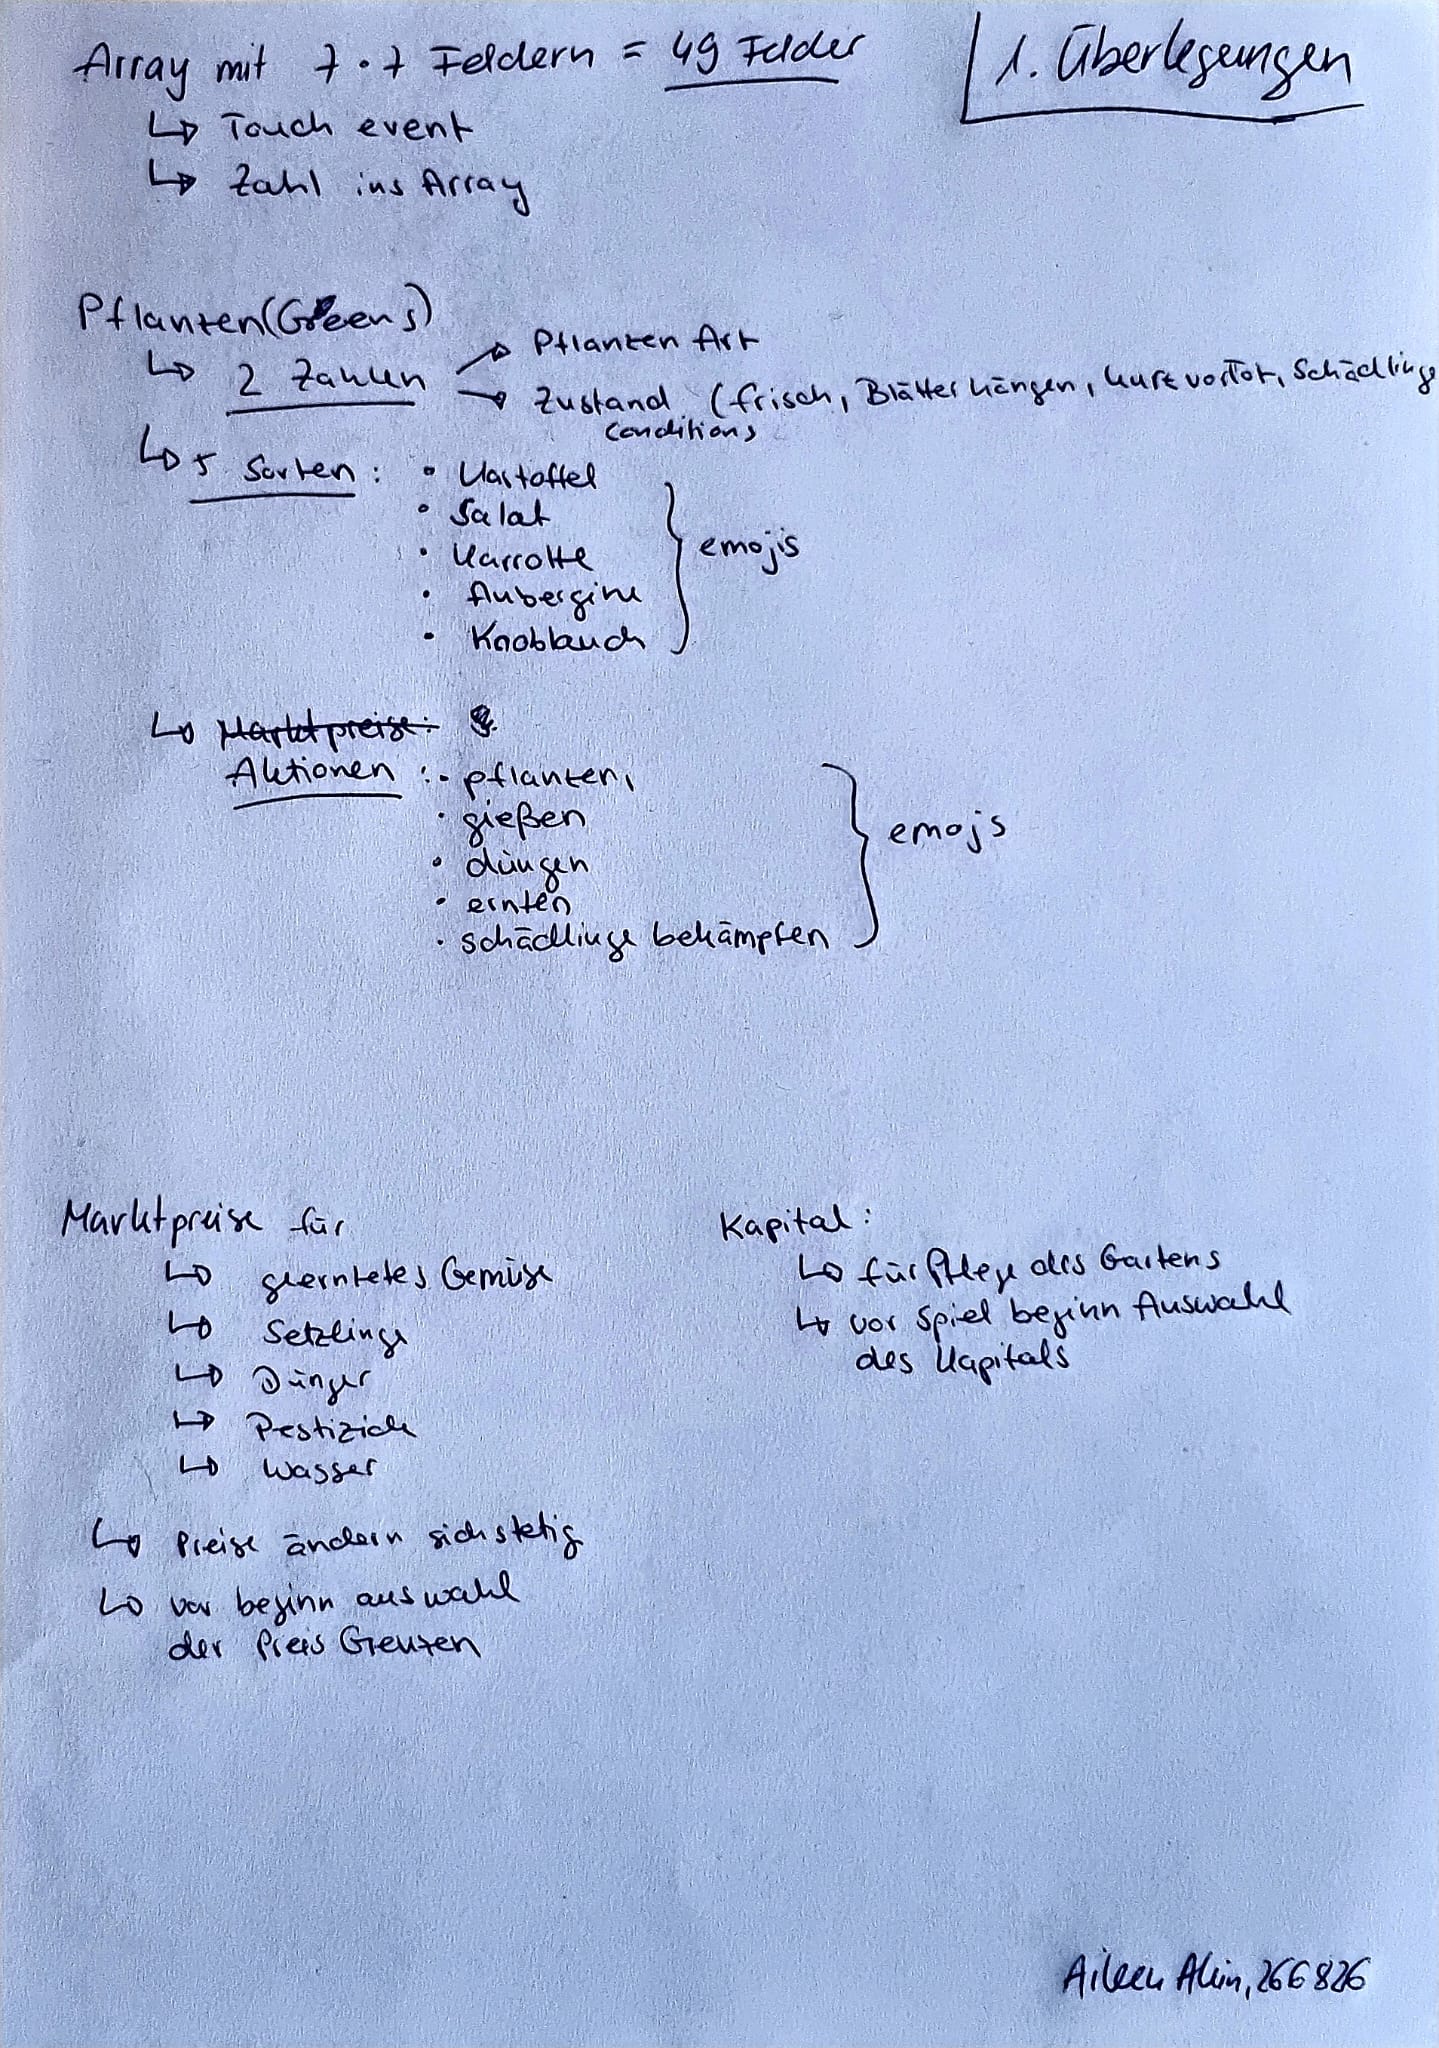 1. Überlegungen
Array mit 7 · 7 Feldern = 49 Felder
↳ Touch event
↳ Zahl ins Array
Pflanzen (Greens)
↳ 2 Zahlen → Pflanzen Art
→ Zustand (frisch, Blätter hängen, kurz vor Tot, Schädlinge
conditions
↳ 5 Sorten : • Kartoffel
• Salat
• Karrotte
• Aubergine
• Knoblauch
emojis
↳ Marktpreise:
Aktionen : • pflanzen,
• gießen
• düngen
• ernten
• schädlinge bekämpfen
emojs
Marktpreise für
↳ geerntetes Gemüse
↳ Setzlinge
↳ Dünger
↳ Pestizide
↳ Wasser
↳ Preise ändern sich stetig
↳ vor beginn auswahl
der Preis Grenzen
Kapital :
↳ für Pflege des Gartens
↳ vor Spiel beginn Auswahl
des Kapitals
Aileen Akin, 266826